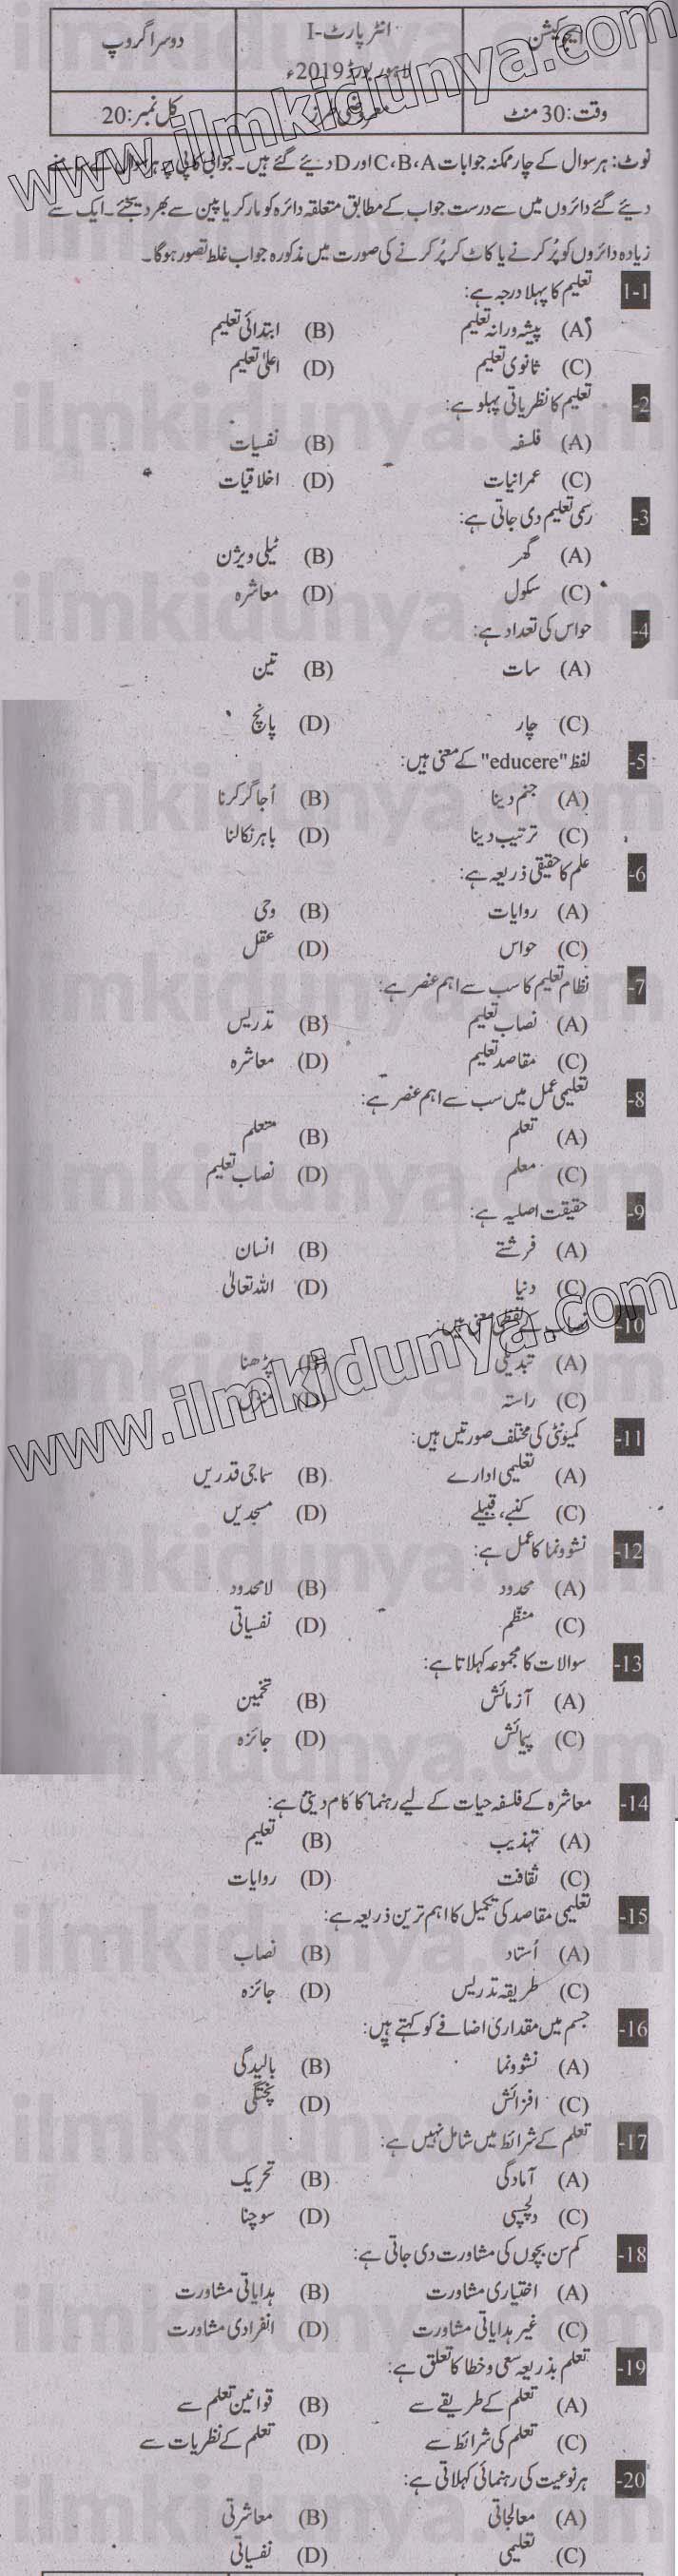 ایجوکیشن
انٹر پارٹ-I
دوسرا گروپ
لاہور بورڈ 2019ء
وقت: 30 منٹ
کل نمبر: 20
نوٹ: ہر سوال کے چار ممکنہ جوابات C،B،A اور D دیئے گئے ہیں۔ جوابی کاپی پر ہر سوال کے سامنے
دیئے گئے دائروں میں سے درست جواب کے مطابق متعلقہ دائرہ کو مارکر یا پین سے بھر دیجئے۔ ایک سے
زیادہ دائروں کو پُر کرنے یا کاٹ کر پُر کرنے کی صورت میں مذکورہ جواب غلط تصور ہوگا۔
1-1 تعلیم کا پہلا درجہ ہے:
(A) پیشہ ورانہ تعلیم (B) ابتدائی تعلیم
(C) ثانوی تعلیم (D) اعلیٰ تعلیم
-2 تعلیم کا نظریاتی پہلو ہے:
(A) فلسفہ (B) نفسیات
(C) عمرانیات (D) اخلاقیات
-3 رسمی تعلیم دی جاتی ہے:
(A) گھر (B) ٹیلی ویژن
(C) سکول (D) معاشرہ
-4 حواس کی تعداد ہے:
(A) سات (B) تین
(C) چار (D) پانچ
-5 لفظ "educere" کے معنی ہیں:
(A) جنم دینا (B) اُجاگر کرنا
(C) ترتیب دینا (D) باہر نکالنا
-6 علم کا حقیقی ذریعہ ہے:
(A) روایات (B) وحی
(C) حواس (D) عقل
-7 نظام تعلیم کا سب سے اہم عنصر ہے:
(A) نصاب تعلیم (B) تدریس
(C) مقاصد تعلیم (D) معاشرہ
-8 تعلیمی عمل میں سب سے اہم عنصر ہے:
(A) تعلم (B) متعلم
(C) معلم (D) نصاب تعلیم
-9 حقیقت اصلیہ ہے:
(A) فرشتے (B) انسان
(C) دنیا (D) اللہ تعالیٰ
-10 نصاب کے لفظی معنی ہیں:
(A) تبدیلی (B) پڑھنا
(C) راستہ (D)
-11 کمیونٹی کی مختلف صورتیں ہیں:
(A) تعلیمی ادارے (B) سماجی قدریں
(C) کنبے، قبیلے (D) مسجدیں
-12 نشوونما کا عمل ہے:
(A) محدود (B) لامحدود
(C) منظّم (D) نفسیاتی
-13 سوالات کا مجموعہ کہلاتا ہے:
(A) آزمائش (B) تخمین
(C) پیمائش (D) جائزہ
-14 معاشرہ کے فلسفہ حیات کے لیے رہنما کا کام دیتی ہے:
(A) تہذیب (B) تعلیم
(C) ثقافت (D) روایات
-15 تعلیمی مقاصد کی تکمیل کا اہم ترین ذریعہ ہے:
(A) اُستاد (B) نصاب
(C) طریقہ تدریس (D) جائزہ
-16 جسم میں مقداری اضافے کو کہتے ہیں:
(A) نشوونما (B) بالیدگی
(C) افزائش (D) پختگی
-17 تعلم کے شرائط میں شامل نہیں ہے:
(A) آمادگی (B) تحریک
(C) دلچسپی (D) سوچنا
-18 کم سن بچوں کی مشاورت دی جاتی ہے:
(A) اختیاری مشاورت (B) ہدایاتی مشاورت
(C) غیر ہدایاتی مشاورت (D) انفرادی مشاورت
-19 تعلم بذریعہ سعی و خطا کا تعلق ہے:
(A) تعلم کے طریقے سے (B) قوانین تعلم سے
(C) تعلم کی شرائط سے (D) تعلم کے نظریات سے
-20 ہر نوعیت کی رہنمائی کہلاتی ہے:
(A) معالجاتی (B) معاشرتی
(C) تعلیمی (D) نفسیاتی
www.ilmkidunya.com
www.ilmkidunya.com